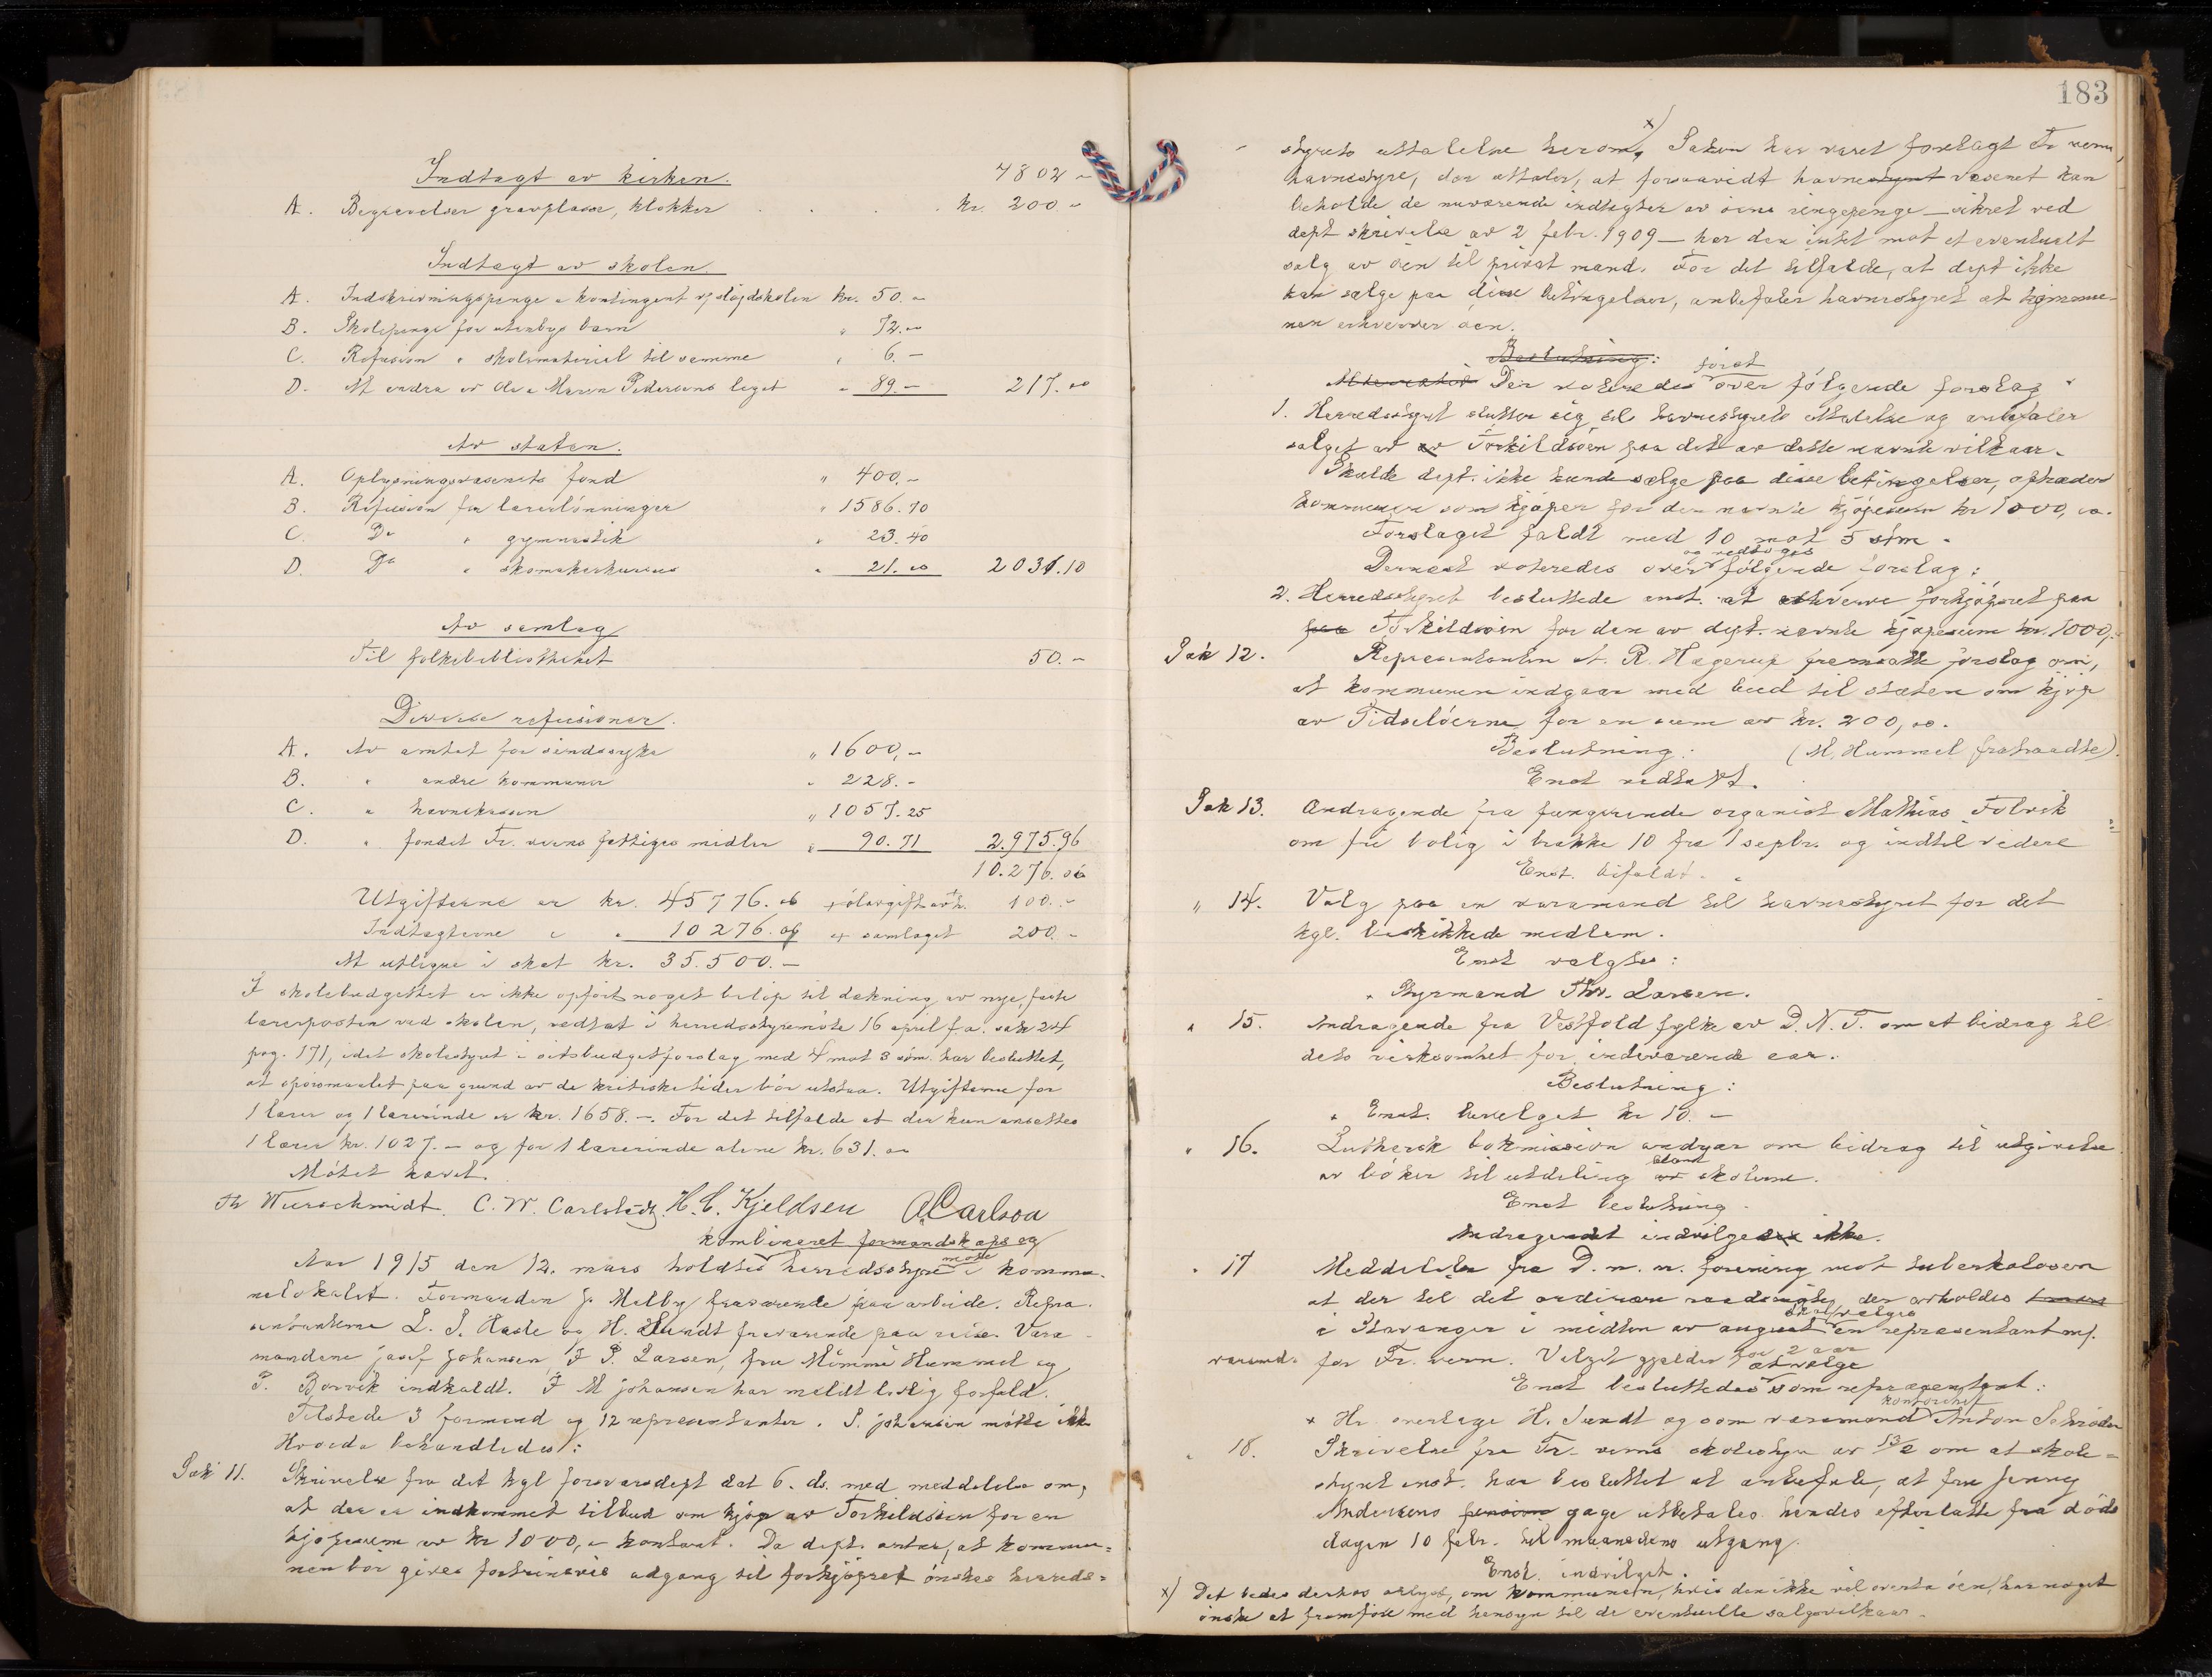 Indtægt av kirken. 4802 -
A. Begravelser gravplasse, klokker . . . kr. 200. -
Indtægt av skolen.
A. Indskrivningspenge & kontingent v/sløjdskolen kr. 50. -
B. Skolepenge for utenbys barn " 72. -
C. Refusion " skolemateriel til samme " 6. -
D. At endra av Ole & Maren Pedersens legat " 89. - 217. 00
Av staten.
A. Oplysningsvæsenets fond " 400. -
B. Refusion for lærerlønninger " 1586. 70
C. Do " gymnastik " 23. 40
D. Do " skomakerkursus " 21. 00 2031. 10
Av samlag
Til folkebibliotheket 50. -
Diverse refusioner.
A. Av amtet for sindssyke " 1600, -
B. " andre kommuner " 228. -
C. " havnekassen " 1057. 25
D. " fondet Fr. verns fattiges midler " 90. 71 2.975. 96
10.276. 06
Utgifterne er kr. 45776. 06 + ølavgift 100. -
Indtægterne " " 10276. 06 av samlaget 200. -
At utligne i skat kr. 35.500. -
I skolebudgettet er ikke opført noget beløp til dækning av nye, faste
lærerposter ved skolen, vedtat i herredsstyremøte 16 april f.a. sak 24
pag. 171, idet skolestyret i sit budgetforslag med 4 mot 3 stm. har besluttet,
at spørsmaalet paa grund av de kritiske tider bør utstaa. Utgifterne for
1 lærer og 1 lærerinde er kr. 1658. -. For det tilfælde at der kun ansættes
1 lærer kr. 1027. - og for 1 lærerinde alene kr. 631. 00
Møtet hævet.
Th Wurschmidt. C. W. Carlstedt. H. C. Kjeldsen A Carlson
kombineret formandskaps og
Aar 1915 den 12. mars holdtes herredsstyremøte i kommu-
nelokalet. Formanden J. Melby fraværende paa arbeide. Repræ-
sentanterne L. S. Hasle og H. Sundt fraværende paa reise. Vara-
mændene Josef Johansen, F P. Larsen, fru Mimmi Hummel og
P. Borvik indkaldt. F M Johansen har meldt lovlig forfald.
Tilstede 3 formænd og 12 repræsentanter. S. Johansen møtte ikke
Hvorda behandledes:
Sak 11. Skrivelse fra det kgl forsvarsdept dat 6. ds. med meddelelse om,
at der er indkommet tilbud om kjøp av Torkildsøen for en
kjøpesum av kr 1000, - kontant. Da dept. antar, at kommu-
nen bør gives fortrinsvis adgang til forkjøpsret ønskes herreds-
183
styrets uttalelse herom, x) Saken har været forelagt Fr. verns
havnestyre, der uttaler, at forsaavidt havnestyret væsenet kan
beholde de nuværende indtægter av øens ringepenge - sikret ved
dept skrivelse av 2 febr. 1909 - har den intet mot et eventuelt
salg av øen til privat mand. For det tilfælde, at dept ikke
kan sælge paa disse betingelser, anbefaler havnestyret at kommu-
nen erhverver øen.
Beslutning:
Alternativ Der voteredes først over følgende forslag
1. Herredsstyret slutter sig til havnestyrets uttalelse og anbefaler
salget av av Torkildsøen paa det av dette nævnte vilkaar.
Skulde dept. ikke kunde sælge paa disse betingelser, optræder
kommunen som kjøper for den nævnte kjøpesum kr 1000, 00.
Forslaget faldt med 10 mot 5 stm.
Dernæst voteredes over og vedtoges følgende forslag:
2. Herredsstyret besluttede enst. at erhverve forkjøpsret paa
paa Torkildsøen for den av dept. nævnte kjøpesum kr. 1000, -
Sak 12. Repræsentanten A. R. Hagerup fremsatte forslag om,
at kommunen indgaar med bud til staten om kjøp
av Tidseløerne for en sum av kr. 200, 00.
Beslutning: (M. Hummel fratraadte).
Enst vedtatt.
Sak 13. Andragende fra fungerende organist Mathias Folvik
om fri bolig i brakke 10 fra 1 septbr. og indtil videre
Enst. bifaldt.
" 14. Valg paa en varamand til havnestyret for det
kgl. beskikkede medlem.
Enst valgtes:
Styrmand Thv. Larsen.
" 15. Andragende fra Vestfold fylke av D. N. T. om et bidrag til
dets virksomhet for indeværende aar.
Beslutning:
Enst. bevilget kr 10. -
" 16. Luthersk bokmission andrar om bidrag til utgivelse
av bøker til utdeling av blant skolerne.
Enst beslutning.
Andragendet indvilgedes ikke.
" 17 Meddelelse fra D. n. n. forening mot tuberkulosen
at der til det ordinære raadsmøte, der avholdes
i Stavanger i midten av august skal vælges en repræsentant m/.
varamd. for Fr. vern. Valget gjælder for 2 aar
Enst besluttedes at vælge som repræsentant:
x Hr. overlæge H. Sundt og som varamand kontorchef Anton Schrøder
" 18. Skrivelse fra Fr. verns skolestyre av 13/2 om at skole-
styret enst. har besluttet at anbefale, at fru Jenny
Andersens pension gage utbetales hendes efterlatte fra døds
dagen 10 febr. til maanedens utgang.
Enst. indvilget.
x) Det bedes derhos oplyst, om kommunen, hvis den ikke vil overta øen, har noget
ønske at fremføre med hensyn til de eventuelle salgsvilkaar.